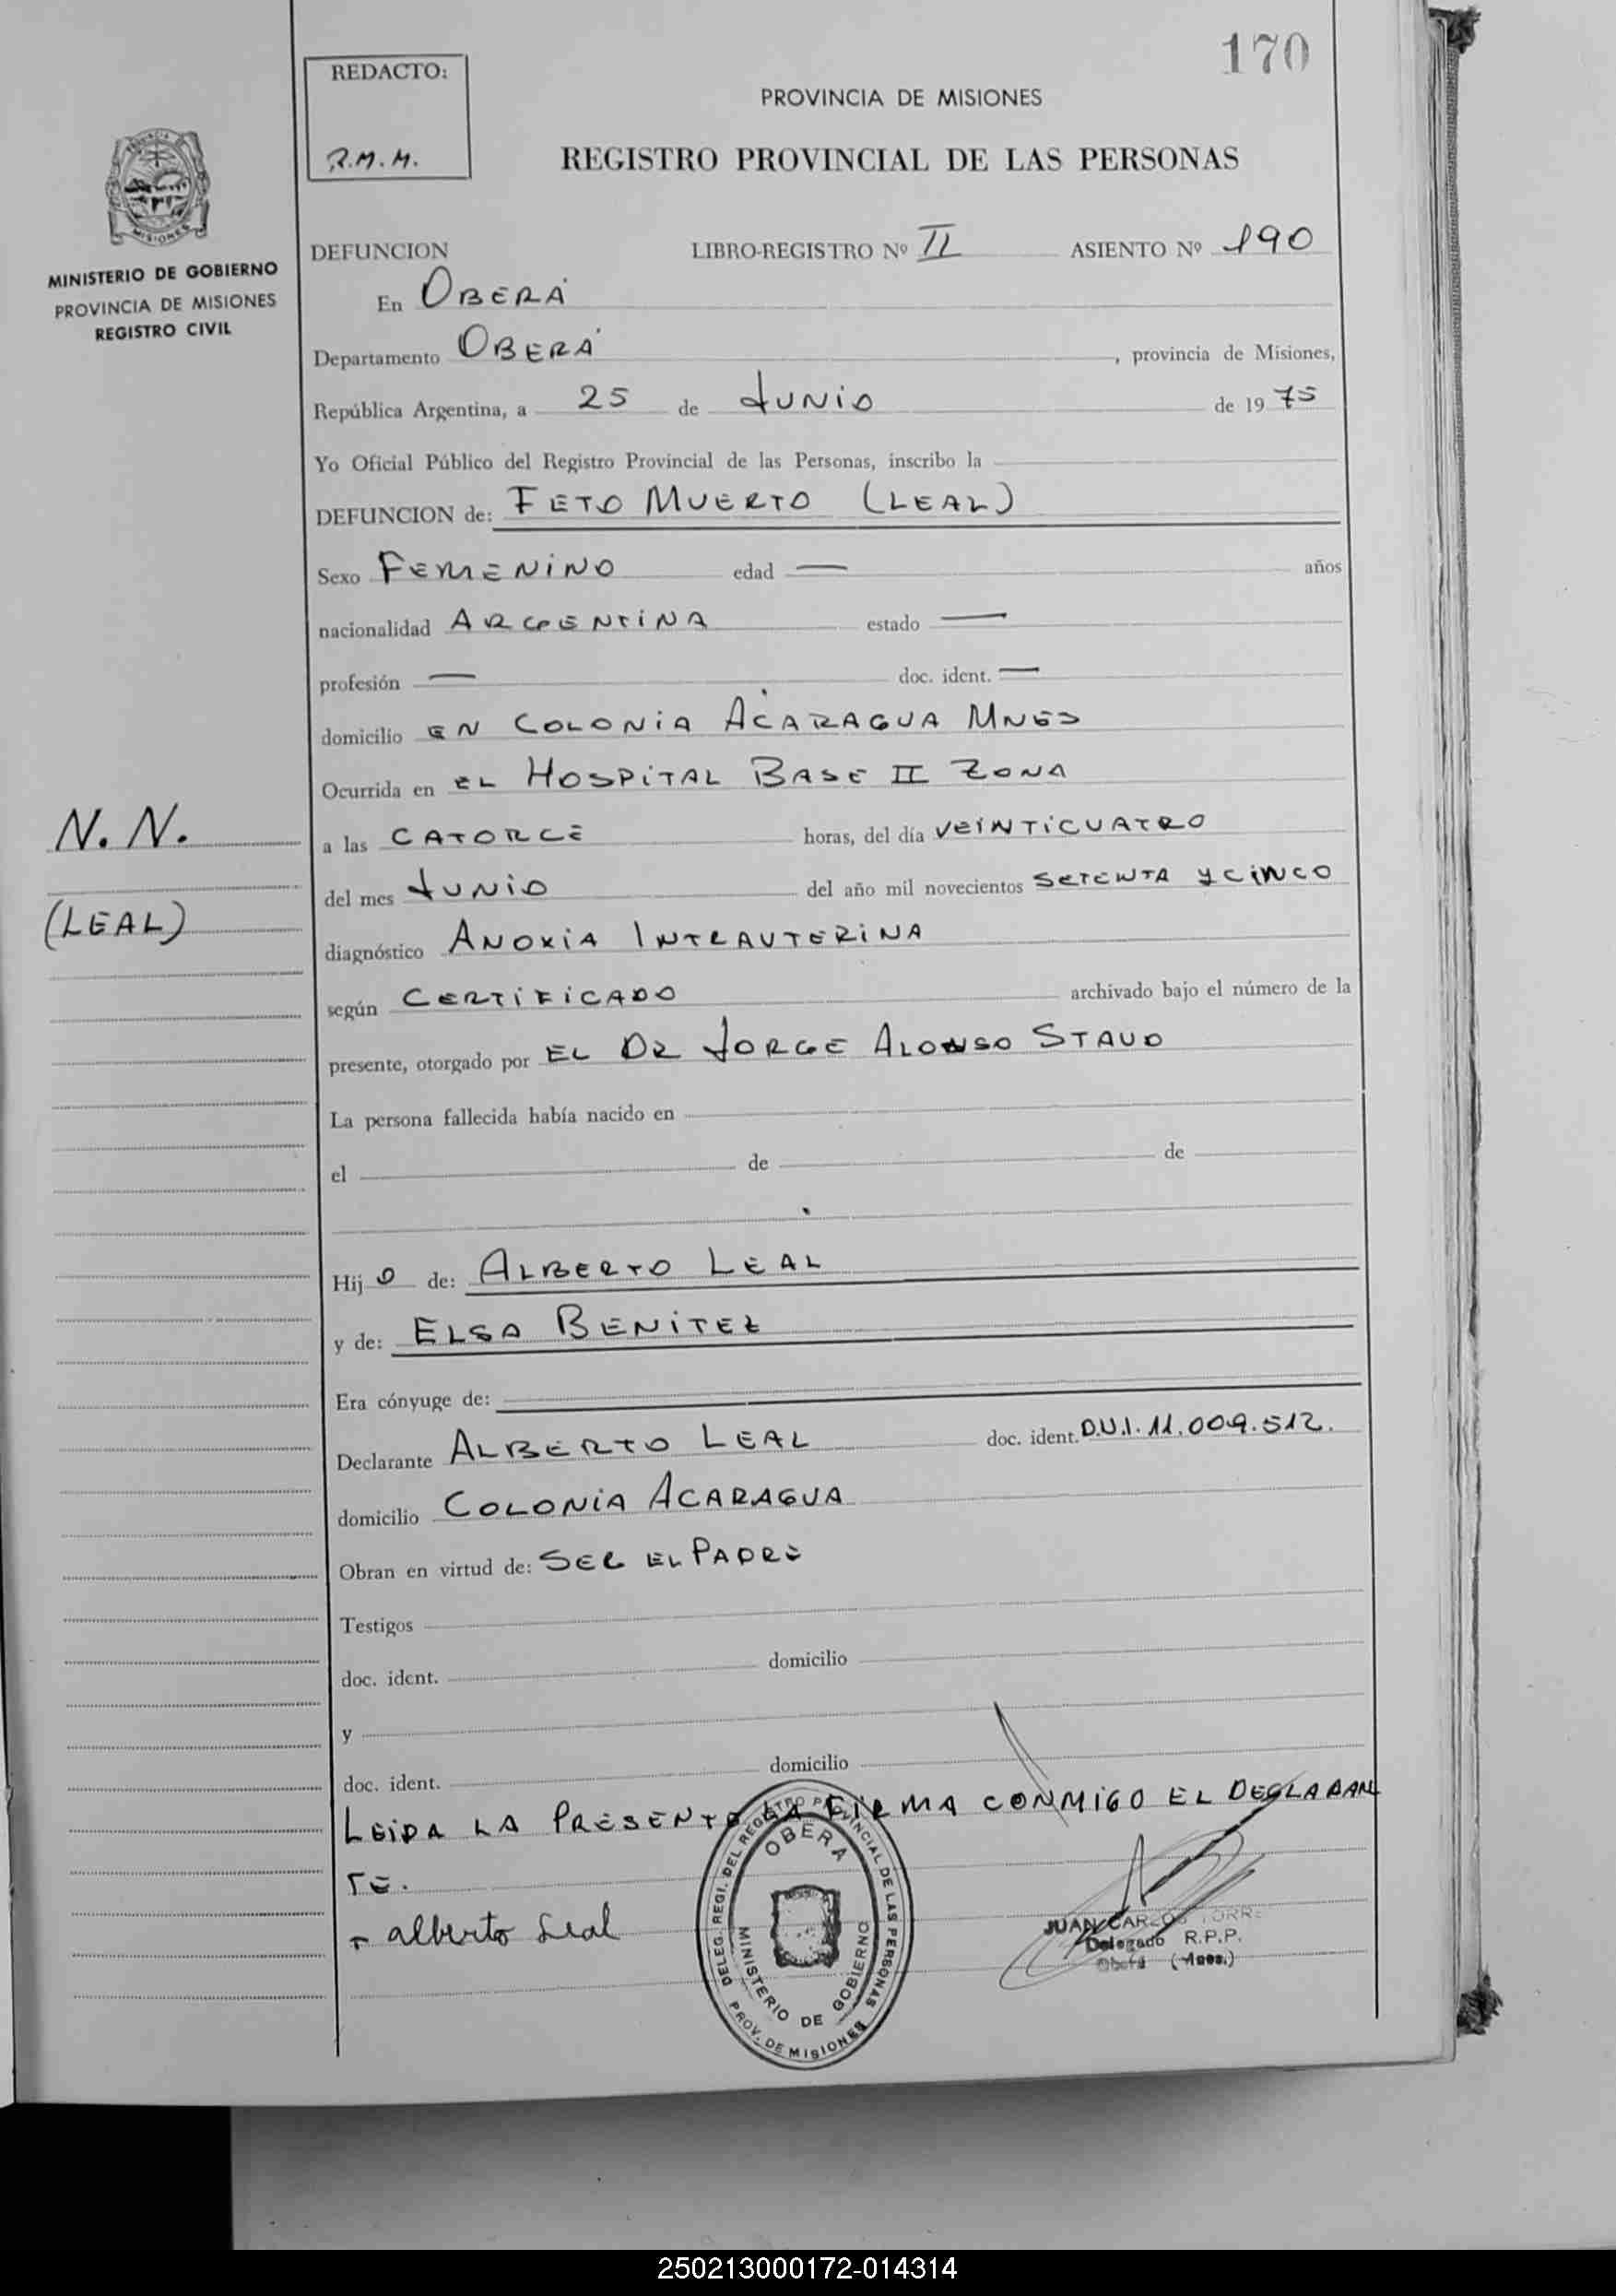 170
REDACTO:
R.M.M.
PROVINCIA DE MISIONES
REGISTRO PROVINCIAL DE LAS PERSONAS
MINISTERIO DE GOBIERNO
PROVINCIA DE MISIONES
REGISTRO CIVIL
DEFUNCION LIBRO-REGISTRO Nº II ASIENTO Nº 190
En OBERÁ
Departamento OBERÁ, provincia de Misiones,
República Argentina, a 25 de JUNIO de 1975
Yo Oficial Público del Registro Provincial de las Personas, inscribo la
DEFUNCION de: FETO MUERTO (LEAL)
Sexo FEMENINO edad — años
nacionalidad ARGENTINA estado —
profesión — doc. ident. —
domicilio EN COLONIA ACARAGUA MNES
Ocurrida en EL HOSPITAL BASE II ZONA
N.N.
a las CATORCE horas, del día VEINTICUATRO
del mes JUNIO del año mil novecientos SETENTA Y CINCO
(LEAL)
diagnóstico ANOXIA INTRAUTERINA
según CERTIFICADO archivado bajo el número de la
presente, otorgado por EL DR JORGE ALONSO STAUD
La persona fallecida había nacido en
el de de
Hij O de: ALBERTO LEAL
y de: ELSA BENITEZ
Era cónyuge de:
Declarante ALBERTO LEAL doc. ident. D.U.I. 11.009.512.
domicilio COLONIA ACARAGUA
Obran en virtud de: SER EL PADRE
Testigos
doc. ident. domicilio
y
doc. ident. domicilio
LEIDA LA PRESENTE LA FIRMA CONMIGO EL DECLARAN
TE.
alberto Leal
DELEG. REGI. DEL REGISTRO PROVINCIAL DE LAS PERSONAS
OBERA
MINISTERIO DE GOBIERNO
PROV. DE MISIONES
JUAN CARLOS TORRE
Delegado R.P.P.
Oberá (Mnes.)
250213000172-014314